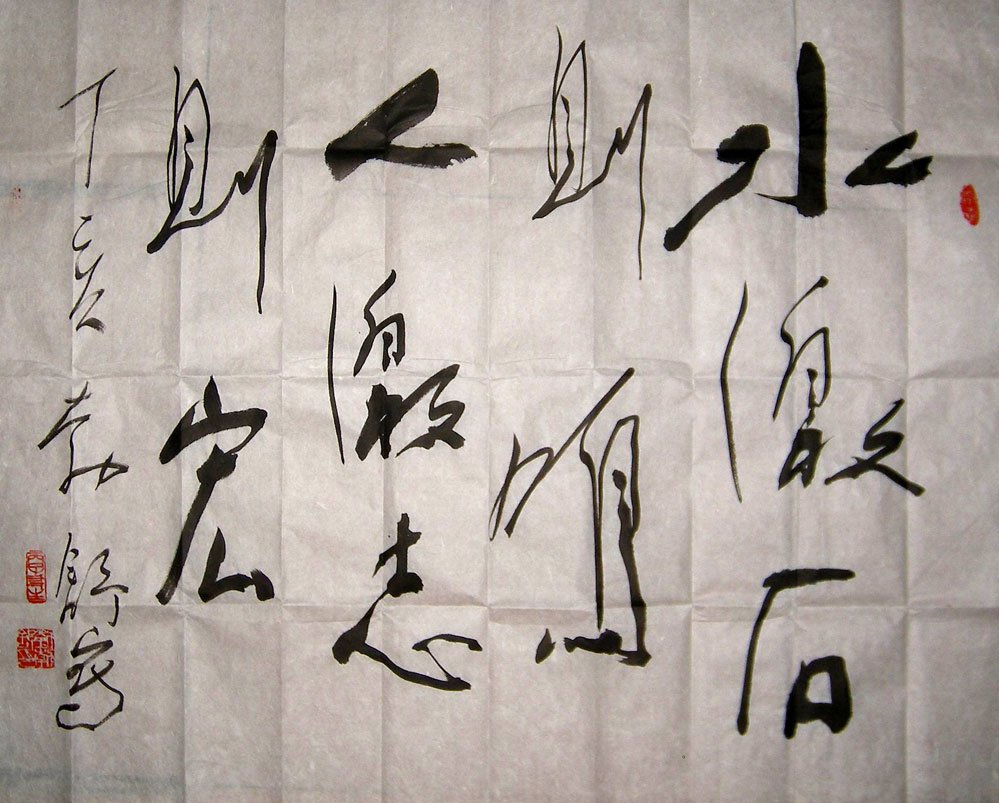 水激石
则鸣
人激志
则宏
丁亥 舒写